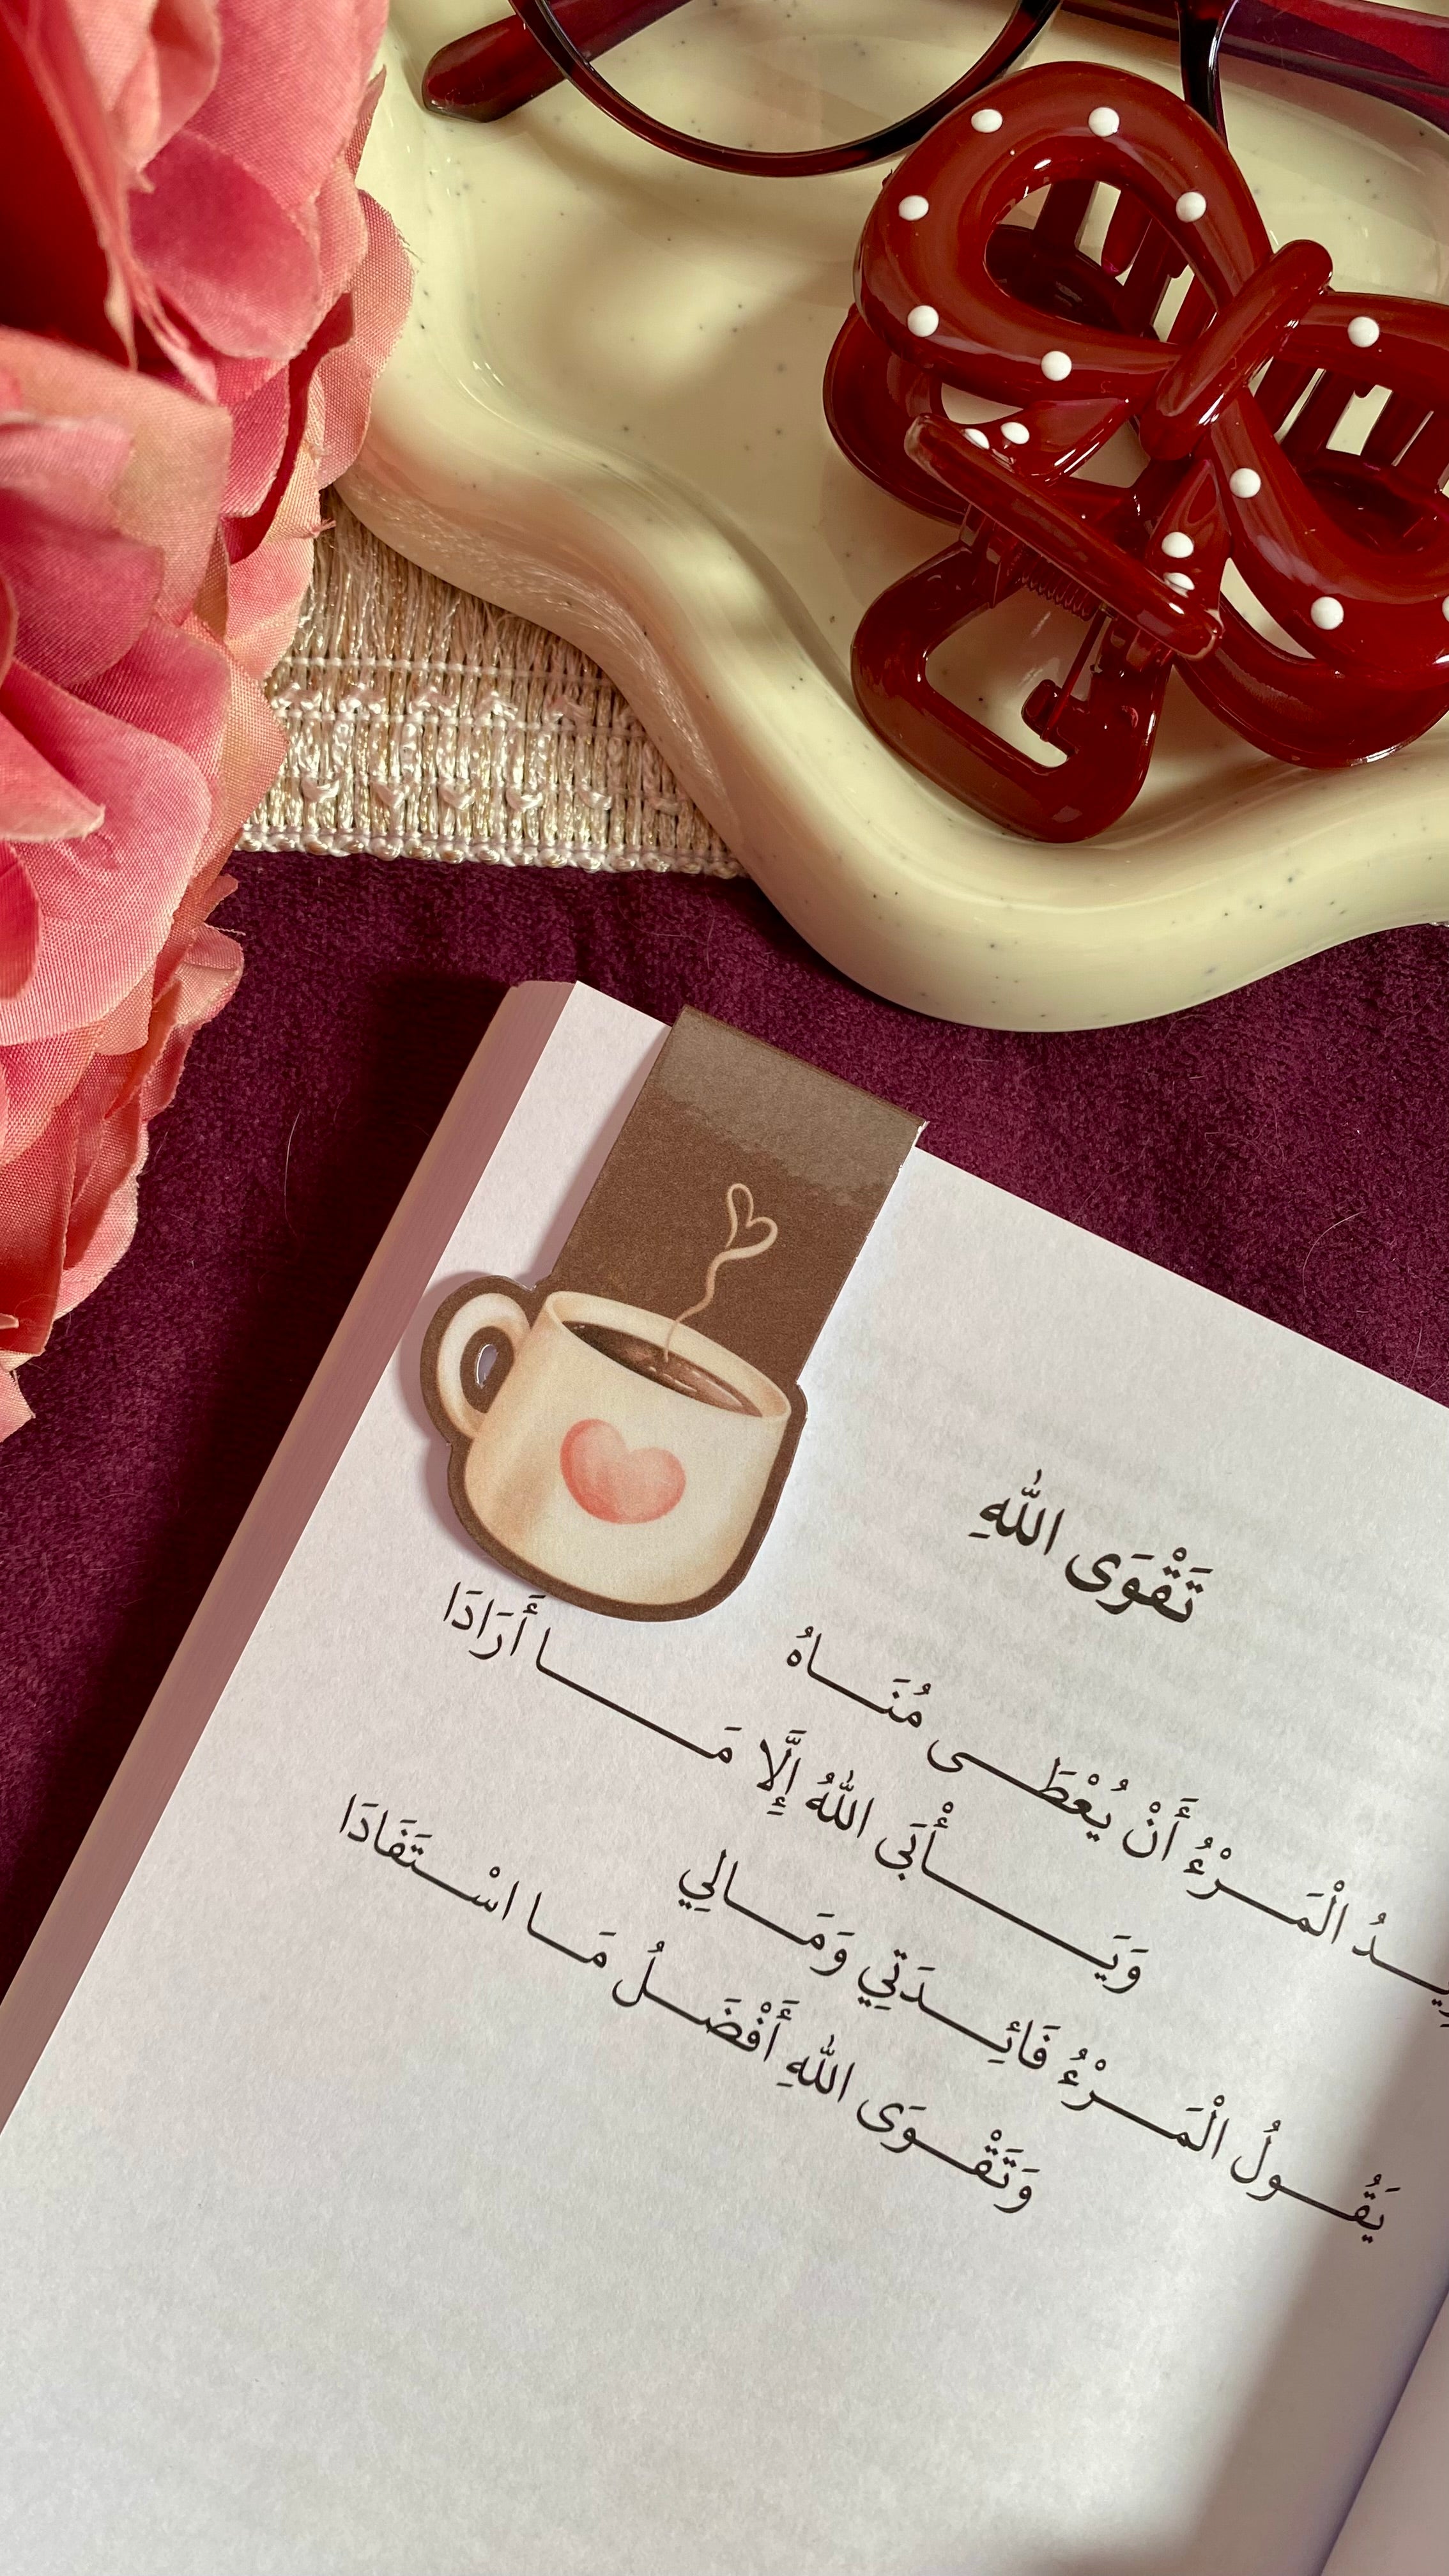 تَقْوَى اللهِ
الْمَرْءُ أَنْ يُعْطَى مُنَاهُ
وَيَأْبَى اللهُ إِلَّا مَا أَرَادَا
يَقُولُ الْمَرْءُ فَائِدَتِي وَمَالِي
وَتَقْوَى اللهِ أَفْضَلُ مَا اسْتَفَادَا